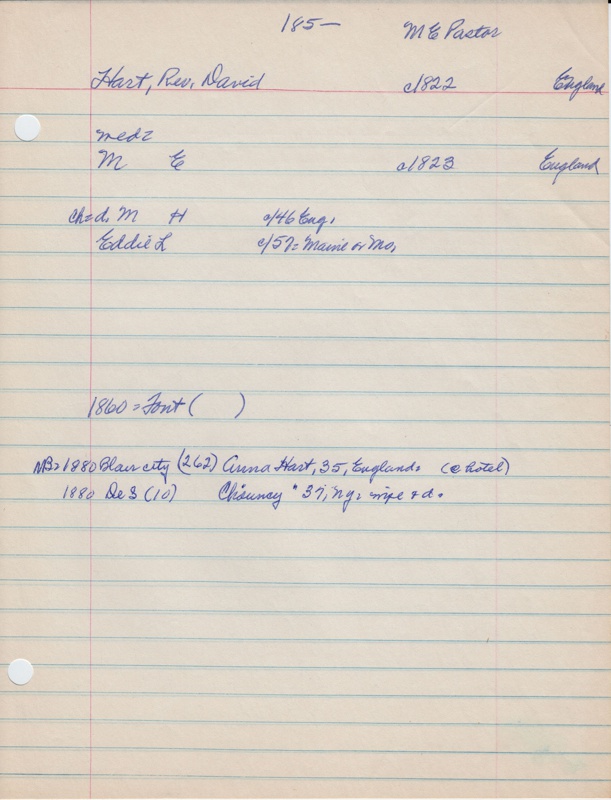 185— ME Pastor
Hart, Rev. David c1822 England
med=
M E c1823 England
ch=d. M H c/46 Eng.
Eddie L c/57= Maine or Mo.
1860 = Font ( )
NB= 1880 Blair city (262) Anna Hart, 35, England. (@ hotel)
1880 De S (10) Chauncy " 37, NY.